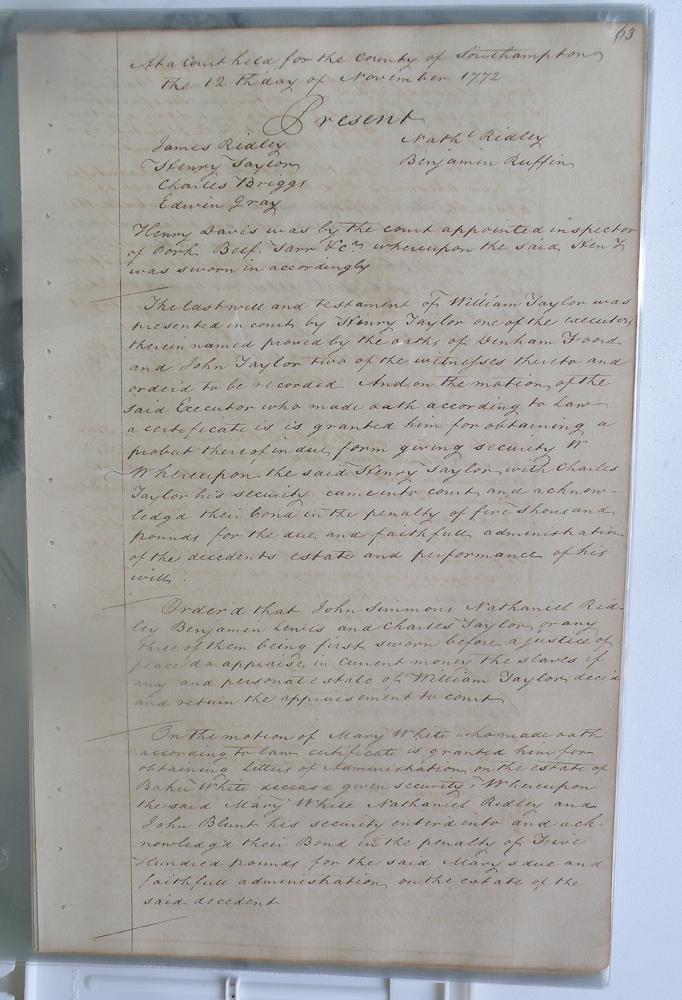 63
At a Court held for the County of Southampton
the 12th day of November 1772
Present
James Ridley
Henry Taylor
Charles Briggs
Edwin Gray
Nathl Ridley
Benjamin Ruffin
Henry Davis was by the court appointed inspector
of Pork Beef Tarr &c whereupon the said Hen
was sworn in accordingly
The last will and testament of William Taylor was
presented in court by Henry Taylor one of the executors
therein named proved by the oaths of Denham
and John Taylor two of the witnesses thereto and
orderd to be recorded And on the motion of the
said Executor who made oath according to Law
a certificate is is granted him for obtaining a
probat thereof in due form giving security
Whereupon the said Henry Taylor with Charles
Taylor his security came into court and acknow-
ledg'd their bond in the penalty of five thousand
pounds for the due and faithfull administration
of the decedents estate and performance of his
will.
Order'd that John Simmons Nathaniel Rid-
ley Benjamin Lewis and Charles Taylor or any
three of them being first sworn before a justice of
peace do appraise in current money the slaves if
any and personal estate of William Taylor decd
and return the appraisement to court
On the motion of Mary White who made oath
according to law certificate is granted him for
obtaining Letters of Administration on the estate of
Baker White deceasd given security, Whereupon
the said Mary White Nathaniel Ridley and
John Blunt his security enterd into and ack-
nowledg'd their Bond in the penalty of Five
Hundred pounds for the said Mary's due and
faithfull administration on the estate of the
said decedent